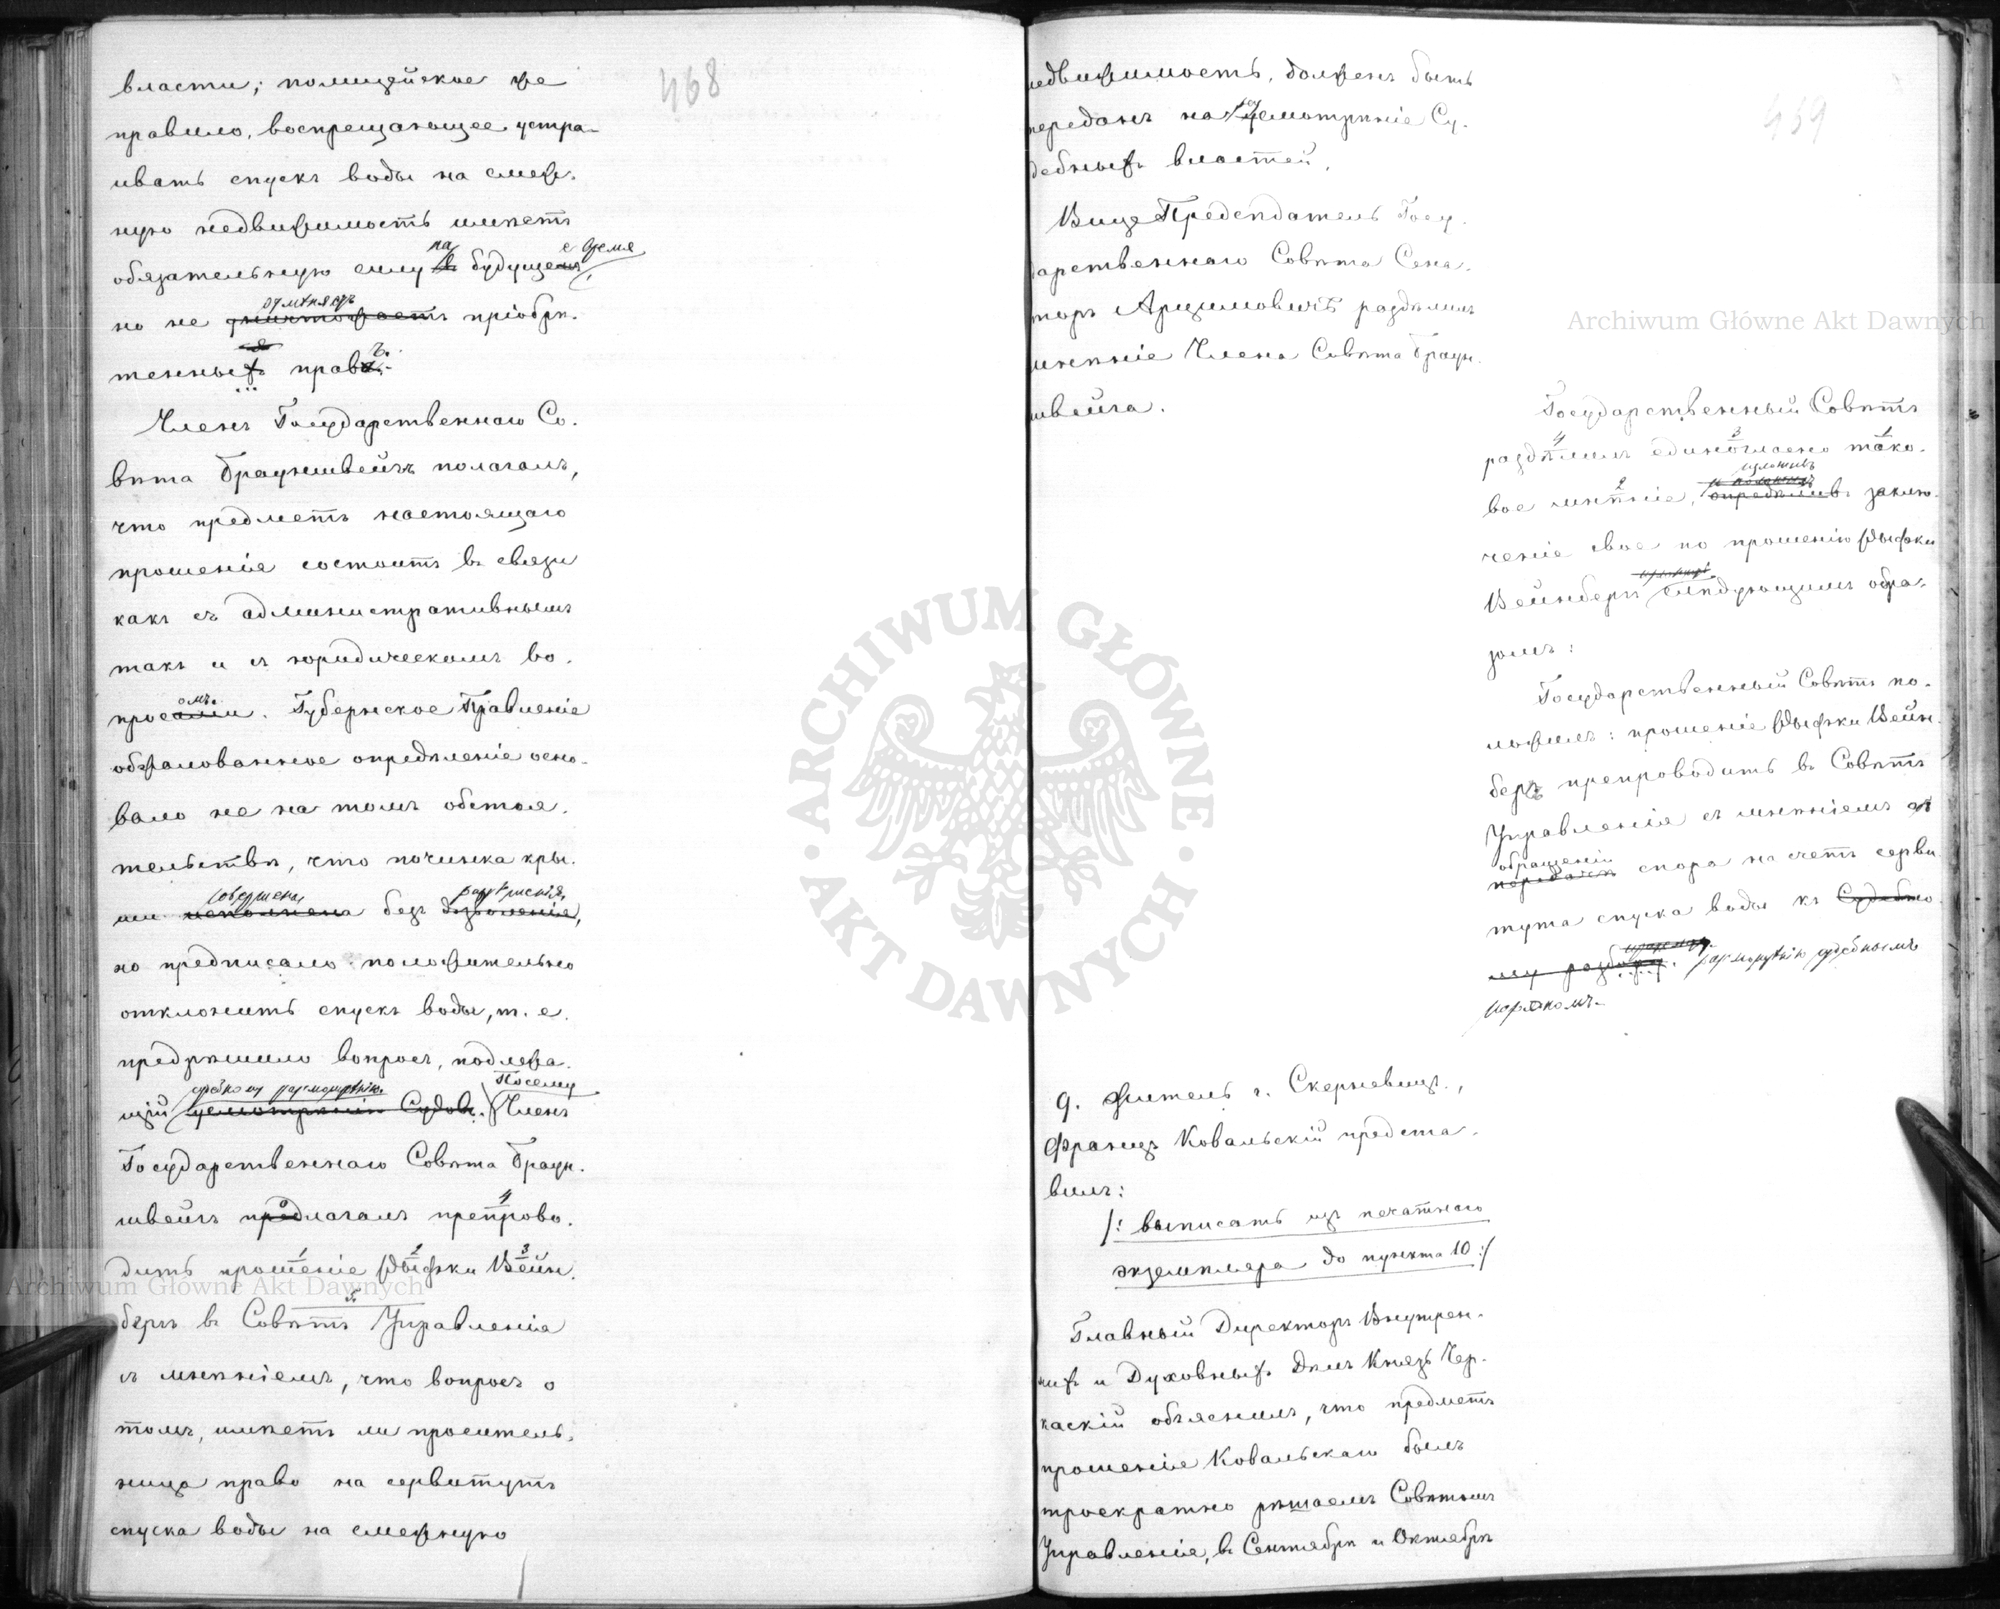 468
власти; полицейское же
правило, воспрещающее устра-
ивать спускъ воды на смеж-
ную недвижимость имѣетъ
на е время
обязательную силу въ будущемъ,
отмѣняетъ
но не уничтожаетъ пріобрѣ-
тенныхъ правъ.
Членъ Государственнаго Со-
вѣта Брауншвейгъ полагалъ,
что предметъ настоящаго
прошенія состоитъ въ связи
какъ съ административнымъ
такъ и съ юридическомъ во-
омъ
просами. Губернское Правленіе
обжалованное опредѣленіе осно-
вало не на томъ обстоя-
тельствѣ, что починка кры-
совершена разрѣшенія,
ши исполнена безъ дозволенія,
но предписало положительно
отклонить спускъ воды, т. е.
предрѣшило вопросъ, подлежа-
судебному разсмотрѣнію. Посему
щій усмотрѣнію Судовъ. Членъ
Государственнаго Совѣта Браун-
4
швейгъ предлагалъ препрово-
1 2 3
дить прошеніе Фыфки Вейн-
бергъ въ Совѣтъ Управленія
съ мнѣніемъ, что вопросъ о
томъ, имѣетъ ли проситель-
ница право на сервитутъ
спуска воды на смежную
459
недвижимость, долженъ быть
переданъ на усмотрѣніе Су-
дебныхъ властей.
Вице Предсѣдатель Госу-
дарственнаго Совѣта Сена-
торъ Арцимовичъ раздѣлилъ
мнѣніе Члена Совѣта Браун-
швейга.
Государственный Совѣтъ
4 3 1
раздѣлилъ единогласно тако-
2 изложивъ
вое мнѣніе, опредѣливъ заклю-
ченіе свое по прошенію Фыфки
Вейнбергъ слѣдующимъ обра-
зомъ:
Государственный Совѣтъ по-
ложилъ: прошеніе Фыфки Вейн-
бергъ препроводить въ Совѣтъ
Управленія съ мнѣніемъ объ
обращеніи
передачѣ спора на счетъ серви-
тута спуска воды къ Судебно-
му разбору. разсмотрѣнію судебнымъ
порядкомъ.
9. Житель г. Скерневицъ,
Францъ Ковальскій предста-
вилъ:
/: выписать изъ печатнаго
экземпляра до пункта 10 :/
Главный Директоръ Внутрен-
нихъ и Духовныхъ Дѣлъ Князь Чер-
каскій объяснилъ, что предметъ
прошенія Ковальскаго былъ
троекратно рѣшаемъ Совѣтомъ
Управленія, въ Сентябрѣ и Октябрѣ
Archiwum Główne Akt Dawnych
Archiwum Główne Akt Dawnych
ARCHIWUM GŁÓWNE · AKT DAWNYCH ·